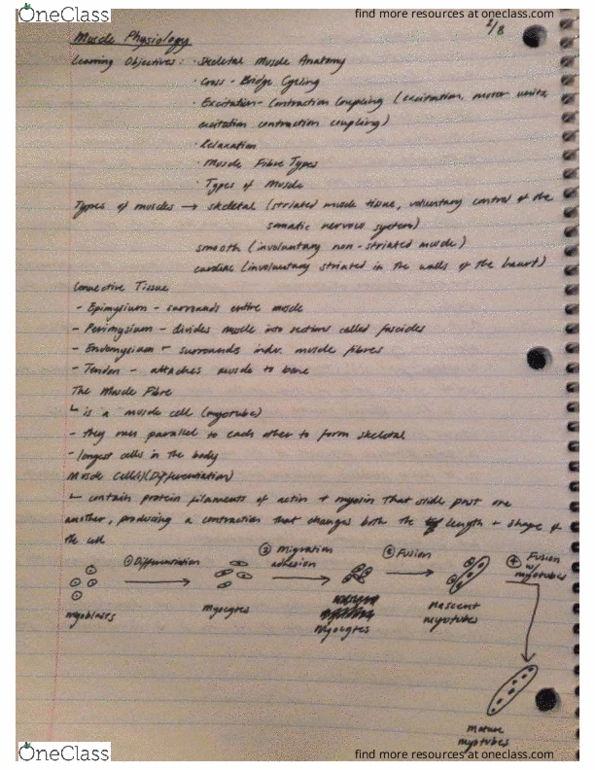 OneClass
find more resources at oneclass.com
1/8
Muscle Physiology
Learning Objectives: · Skeletal Muscle Anatomy
· Cross-Bridge Cycling
· Excitation-Contraction Coupling (excitation, motor units,
excitation contraction coupling)
· Relaxation
· Muscle Fibre Types
· Types of Muscle
Types of muscles → skeletal (striated muscle tissue, voluntary control of the
somatic nervous system)
smooth (involuntary non-striated muscle)
cardiac (involuntary striated in the walls of the heart)
Connective Tissue
- Epimysium - surrounds entire muscle
- Perimysium - divides muscle into sections called fascicles
- Endomysium - surrounds indv. muscle fibres
- Tendon - attaches muscle to bone
The Muscle Fibre
↳ is a muscle cell (myotube)
- they run parallel to each other to form skeletal
- longest cells in the body
Muscle Cell(s)(Differentiation)
↳ contain protein filaments of actin + myosin that slide past one
another, producing a contraction that changes both the length + shape of
the cell
① Differentiation
② Migration
adhesion
③ Fusion
④ Fusion
w/
myotubes
myoblasts
myocytes
myocytes
nascent
myotubes
mature
myotubes
OneClass
find more resources at oneclass.com